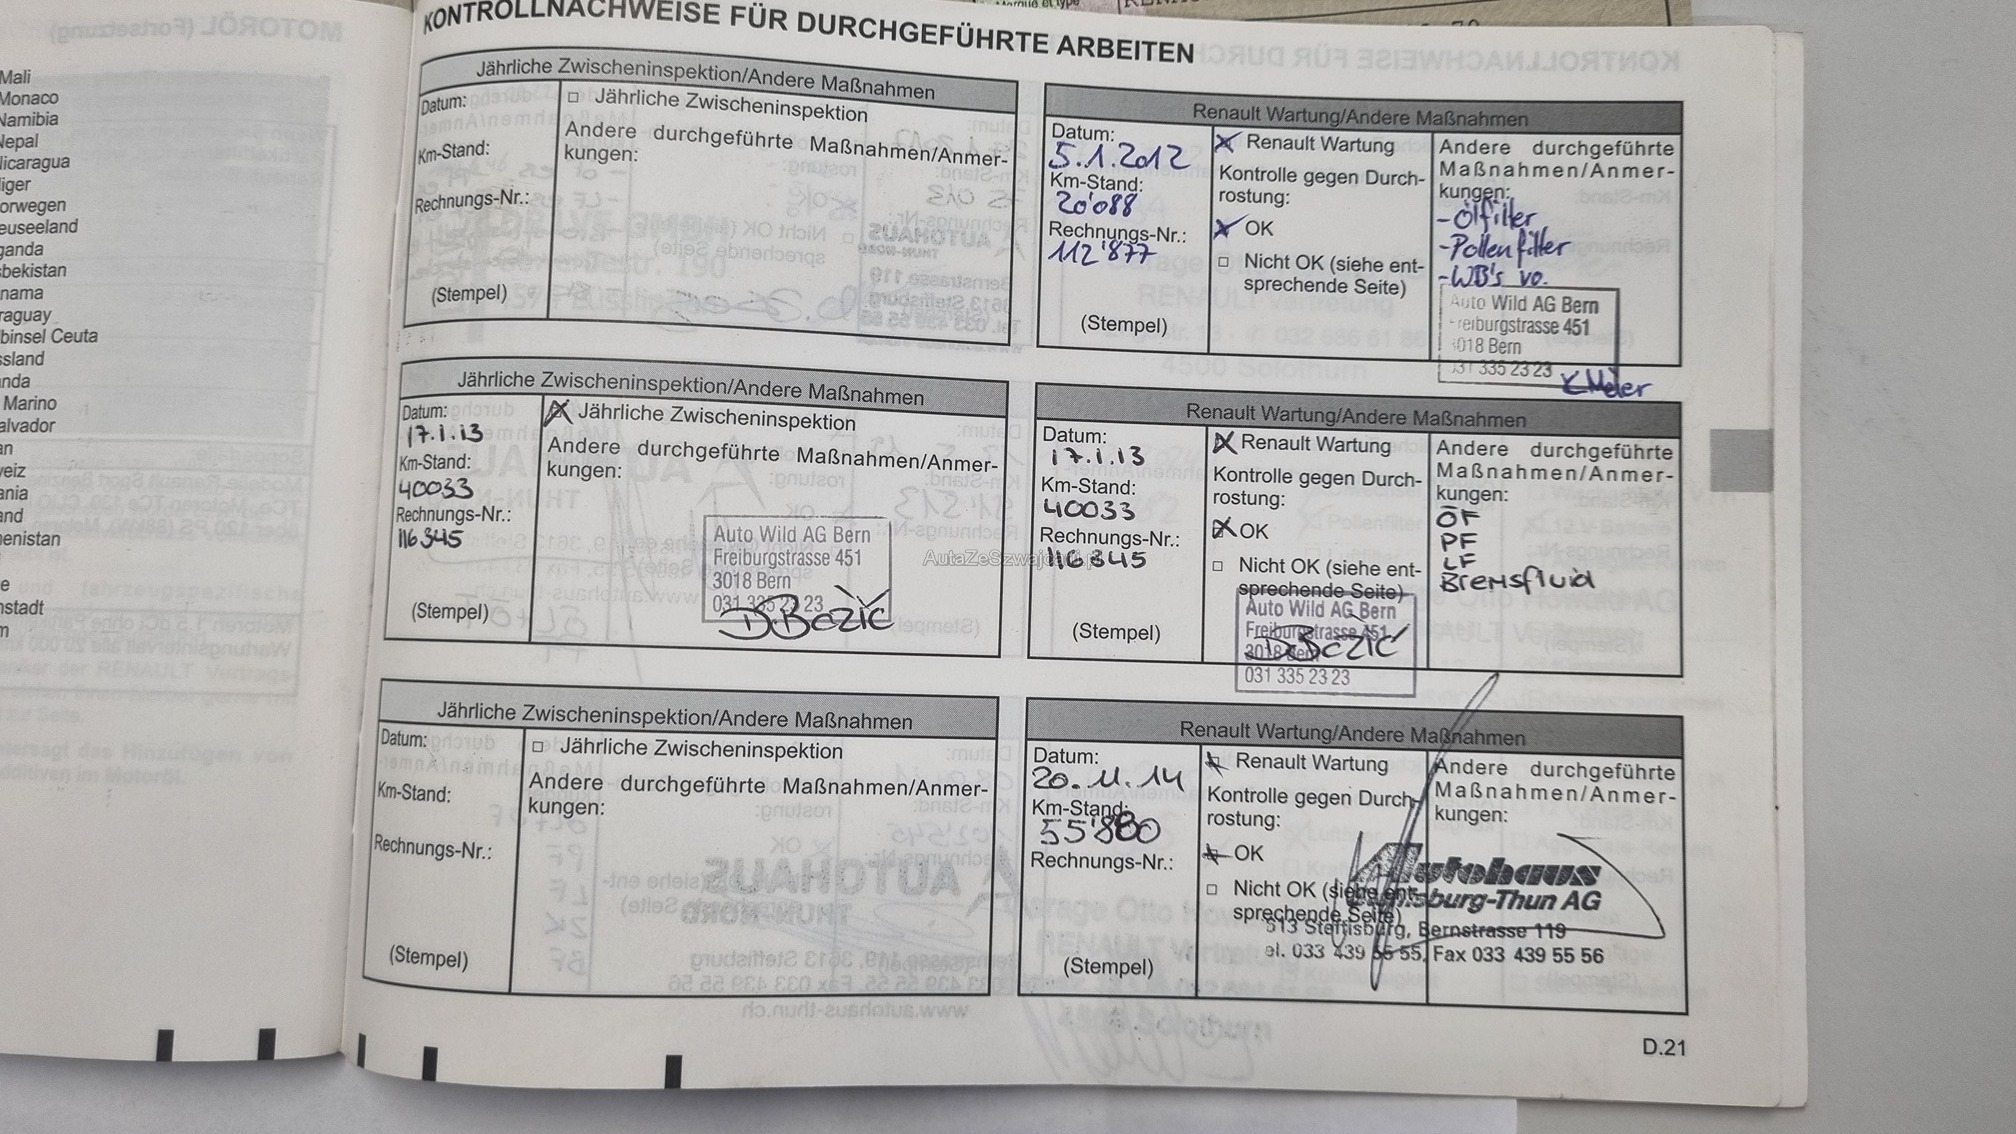 MOTORÖL (Fortsetzung)
Mali
Monaco
Namibia
Nepal
Nicaragua
iger
orwegen
euseeland
ganda
sbekistan
nama
raguay
binsel Ceuta
ssland
nda
Marino
alvador
an
veiz
ania
and
nenistan
e
nstadt
KONTROLLNACHWEISE FÜR DURCHGEFÜHRTE ARBEITEN
Jährliche Zwischeninspektion/Andere Maßnahmen
Datum:
Km-Stand:
Rechnungs-Nr.:
(Stempel)
□ Jährliche Zwischeninspektion
Andere durchgeführte Maßnahmen/Anmer-
kungen:
Renault Wartung/Andere Maßnahmen
Datum:
5.1.2012
Km-Stand:
20'088
Rechnungs-Nr.:
112'877
(Stempel)
Renault Wartung
Kontrolle gegen Durch-
rostung:
OK
□ Nicht OK (siehe ent-
sprechende Seite)
Andere durchgeführte
Maßnahmen/Anmer-
kungen:
-Ölfilter
-Pollenfilter
-WB's vo.
Auto Wild AG Bern
Freiburgstrasse 451
3018 Bern
031 335 23 23
Jährliche Zwischeninspektion/Andere Maßnahmen
Datum:
17.1.13
Km-Stand:
40033
Rechnungs-Nr.:
116345
(Stempel)
Jährliche Zwischeninspektion
Andere durchgeführte Maßnahmen/Anmer-
kungen:
Auto Wild AG Bern
Freiburgstrasse 451
3018 Bern
031 335 23 23
DBozic
Renault Wartung/Andere Maßnahmen
Datum:
17.1.13
Km-Stand:
40033
Rechnungs-Nr.:
116345
(Stempel)
Renault Wartung
Kontrolle gegen Durch-
rostung:
OK
□ Nicht OK (siehe ent-
sprechende Seite)
Auto Wild AG Bern
Freiburgstrasse 451
3018 Bern
031 335 23 23
DBozic
Andere durchgeführte
Maßnahmen/Anmer-
kungen:
ÖF
PF
LF
Bremsfluid
AutaZeSzwajcarii.pl
Jährliche Zwischeninspektion/Andere Maßnahmen
Datum:
Km-Stand:
Rechnungs-Nr.:
(Stempel)
□ Jährliche Zwischeninspektion
Andere durchgeführte Maßnahmen/Anmer-
kungen:
Renault Wartung/Andere Maßnahmen
Datum:
20.11.14
Km-Stand:
55'880
Rechnungs-Nr.:
(Stempel)
Renault Wartung
Kontrolle gegen Durch-
rostung:
OK
□ Nicht OK (siehe ent-
sprechende Seite)
Andere durchgeführte
Maßnahmen/Anmer-
kungen:
Autohaus
Steffisburg-Thun AG
613 Steffisburg, Bernstrasse 119
el. 033 439 55 55, Fax 033 439 55 56
D.21